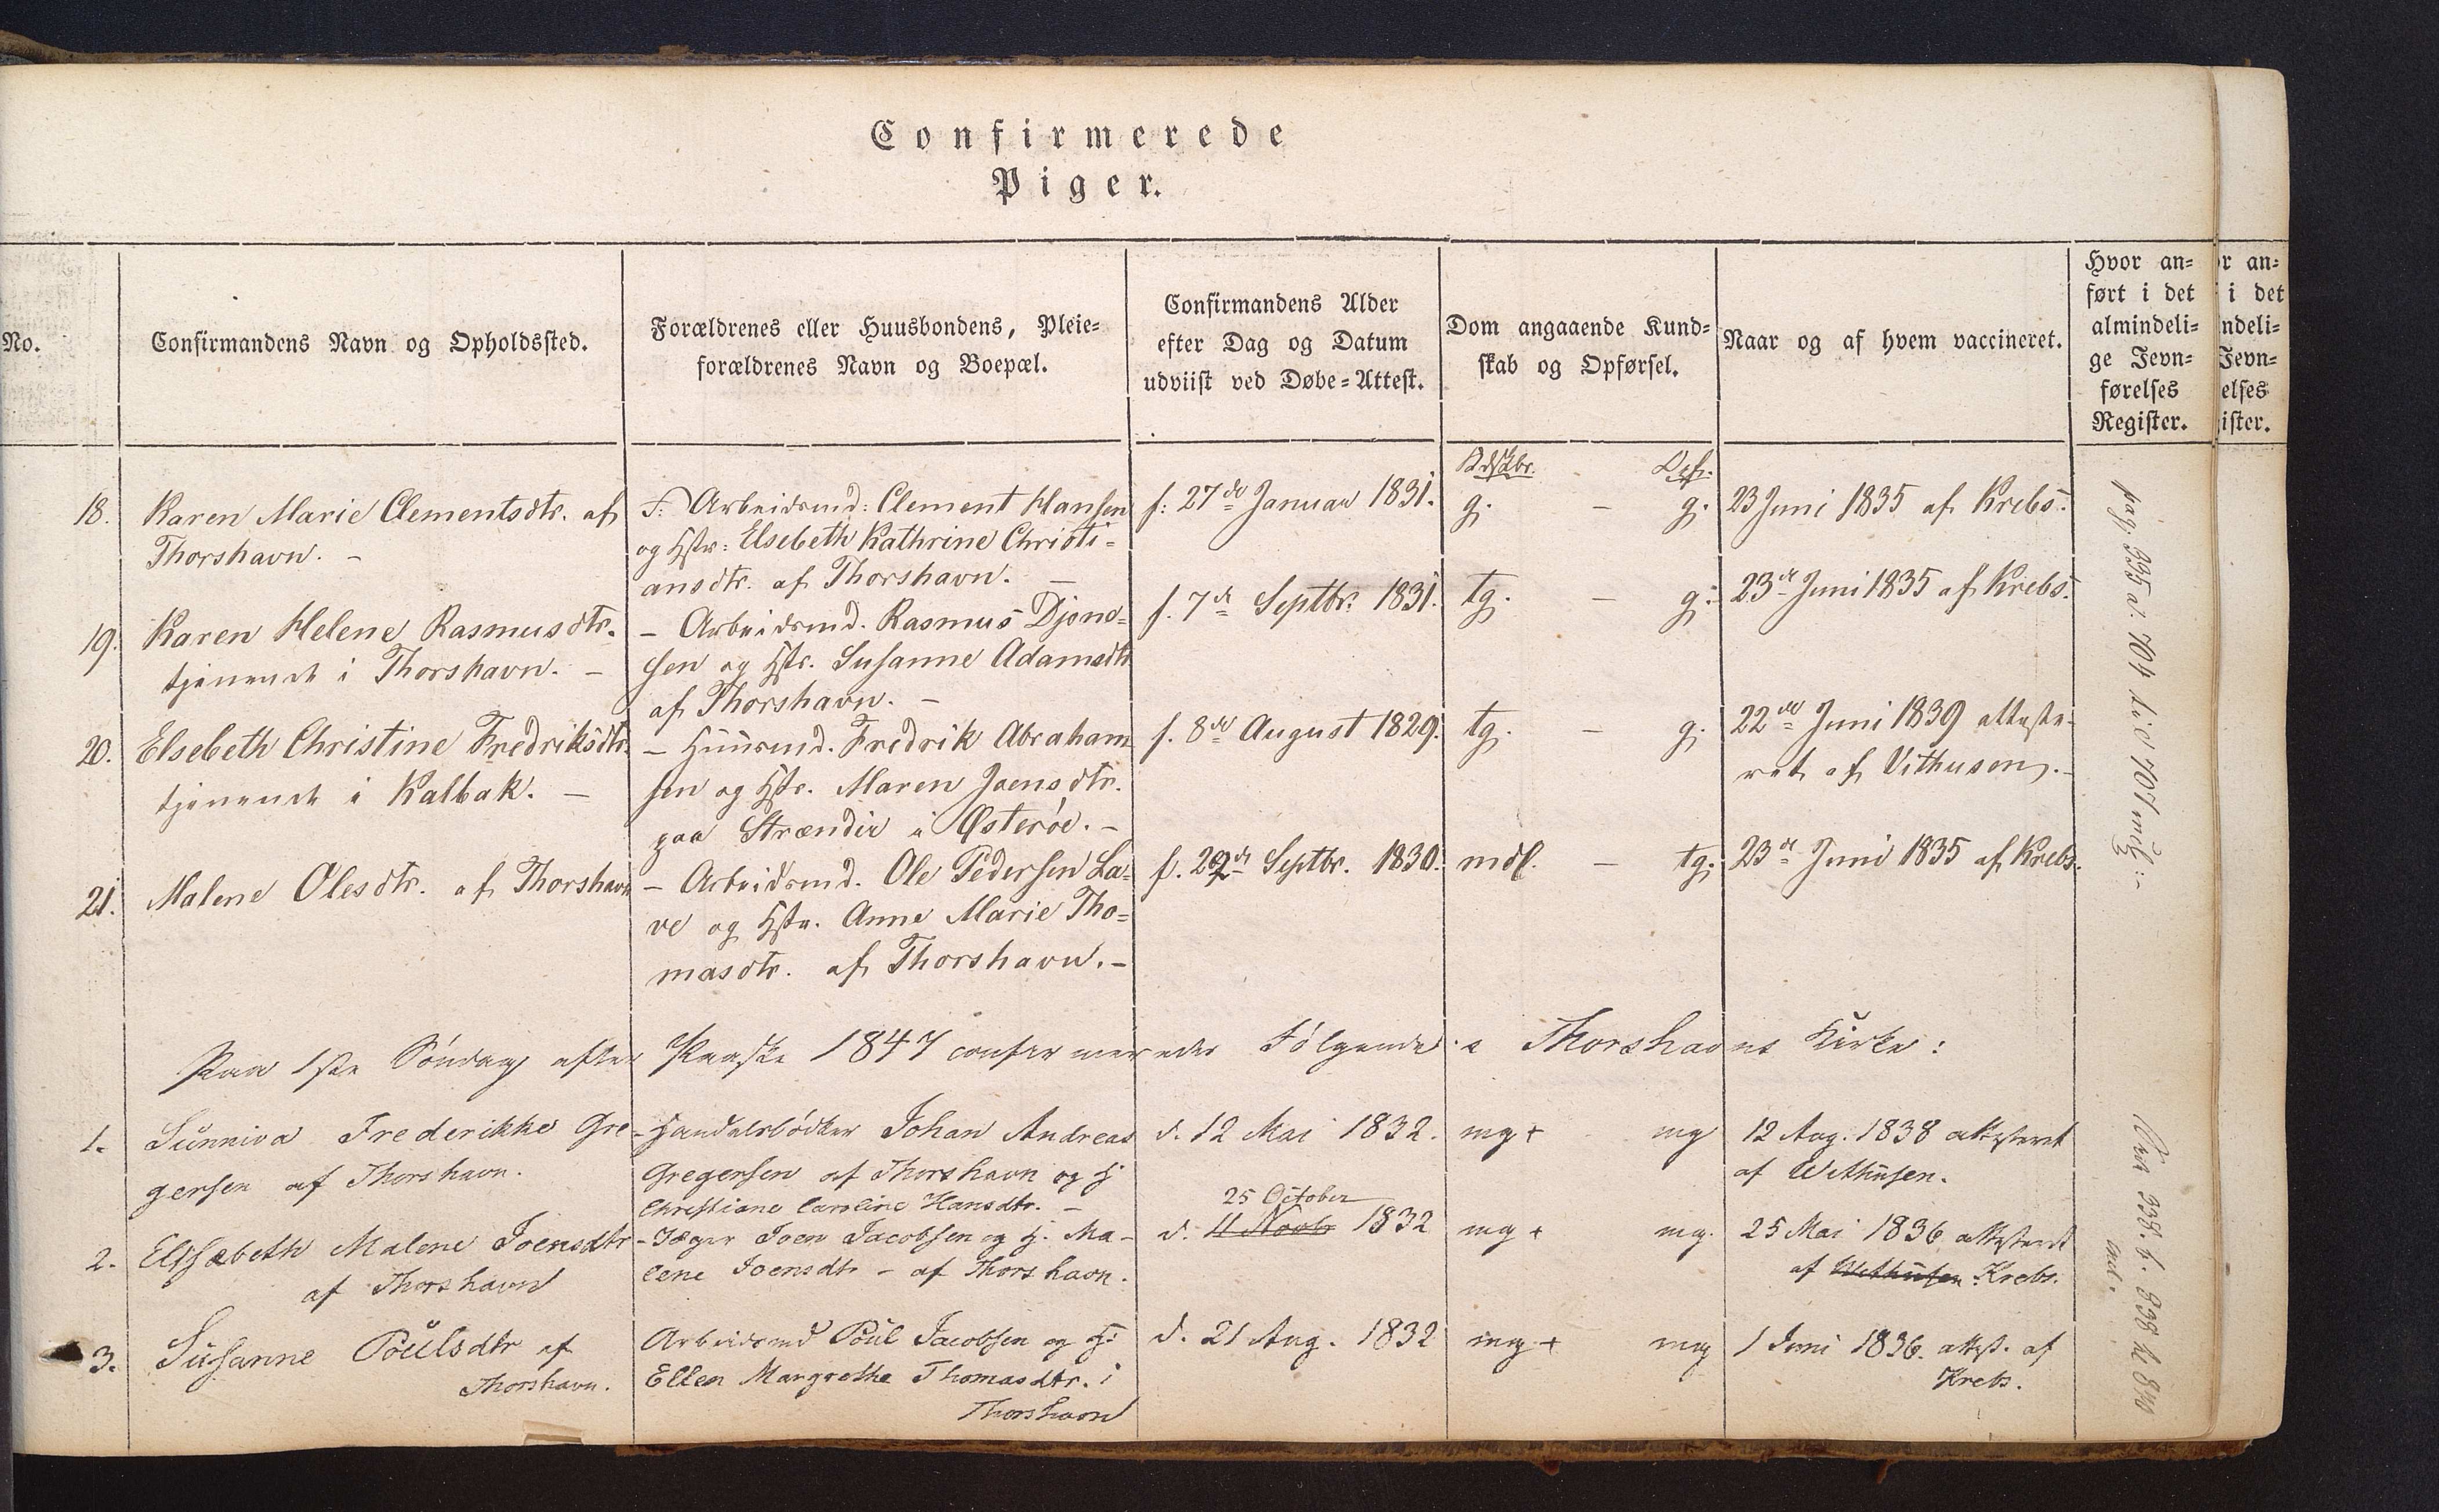 Confirmerede
Piger.
No.
Confirmandens Navn og Opholdssted.
Forældrenes eller Huusbondens, Pleie=
forældrenes Navn og Boepæl.
Confirmandens Alder
efter Dag og Datum
udviist ved Døbe=Attest.
Dom angaaende Kund=
skab og Opførsel.
Naar og af hvem vaccineret.
Hvor an=
ført i det
almindeli=
ge Jevn=
førelses
Register.
r an=
i det
ndeli=
Jevn=
elses
ister.
Kdskbr. - Opf.
18. Karen Marie Clementsdtr. af
Thorshavn. -
F. Arbeidsmd: Clement Hansen
og Hstr: Elsebeth Kathrine Christi=
ansdtr. af Thorshavn. -
f: 27de Januar 1831.
g. - g.
23 Juni 1835 af Krebs.
19. Karen Helene Rasmusdtr.
tjenende i Thorshavn. -
- Arbeidsmd. Rasmus Djone=
sen og Hstr. Susanne Adamsdtr
af Thorshavn. -
f. 7de Septbr. 1831.
tg. - g.
23de Juni 1835 af Krebs.
20. Elsebeth Christine Fredriksdtr.
tjenende i Kalbak. -
- Huusmd. Fredrik Abraham
sen og Hstr. Maren Joensdtr.
paa Strændir i Østerøe. -
f. 8de August 1829.
tg. - g.
22de Juni 1839 atteste-
ret af Vithusen. -
21. Malene Olesdtr. af Thorshavn
- Arbeidsmd. Ole Pedersen La=
ve og Hstr. Anne Marie Tho=
masdtr. af Thorshavn. -
f. 29de Septbr. 1830.
mdl. - tg.
23de Juni 1835 af Krebs.
pag. 335 a: 704 &: 707 incl: -
Paa 1ste Søndag efter Paaske 1847 confirmeredes Følgende i Thorshavns Kirke:
1. Sunniva Frederikke Gre
gersen af Thorshavn.
- Handelsbødker Johan Andreas
Gregersen af Thorshavn og H
Christiane Caroline Hansdtr. -
d. 12 Mai 1832.
mg+ mg
12 Aug. 1838 attesteret
af Withusen.
2. Elisabeth Malene Joensdtr
af Thorshavn
- Jæger Joen Jacobsen og H. Ma-
lene Joensdtr - af Thorshavn.
25 October
d. 11 Novbr 1832
mg+ mg.
25 Mai 1836 attesteret
af Withusen Krebs.
3. Susanne Poulsdtr af
Thorshavn.
Arbeidsmd Poul Jacobsen og H:
Ellen Margrethe Thomasdtr. i
Thorshavn
d. 21 Aug. 1832
mg+ mg
1 Juni 1836. attest. af
Krebs.
338.
838 til 840
incl.